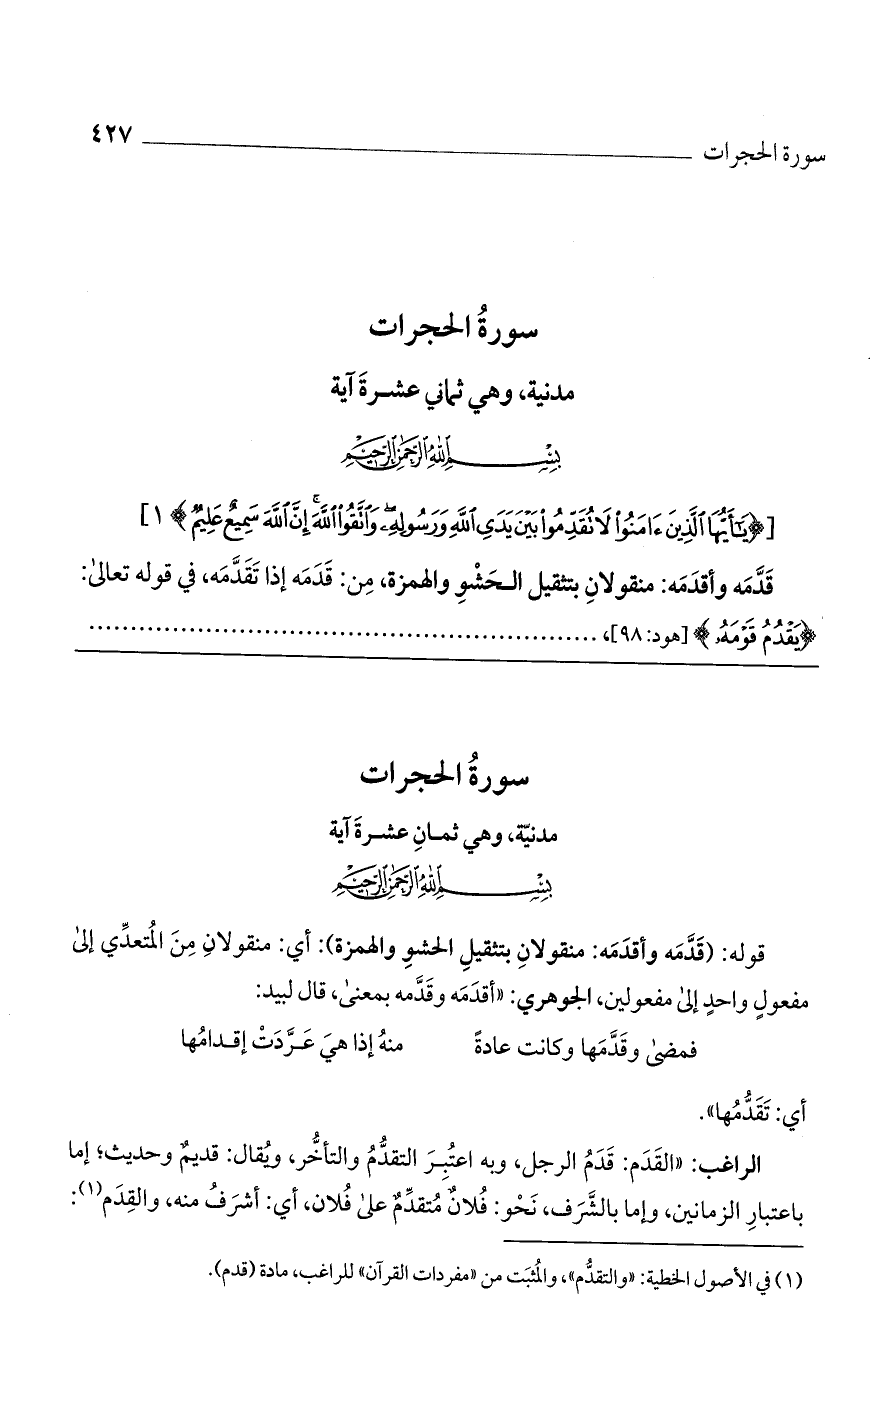 سورة الحجرات ٤٢٧
سورةُ الحجرات
مدنية، وهي ثماني عشرةَ آية
بِسْمِ اللهِ الرَّحْمٰنِ الرَّحِيمِ
[﴿يَٰٓأَيُّهَا ٱلَّذِينَ ءَامَنُوا۟ لَا تُقَدِّمُوا۟ بَيْنَ يَدَىِ ٱللَّهِ وَرَسُولِهِۦ ۖ وَٱتَّقُوا۟ ٱللَّهَ ۚ إِنَّ ٱللَّهَ سَمِيعٌ عَلِيمٌ﴾ ١]
قَدَّمَه وأقدَمَه: منقولانِ بتثقيل الحَشْوِ والهمزة، مِن: قَدَمَه إذا تَقَدَّمَه، في قوله تعالىٰ:
﴿يَقْدُمُ قَوْمَهُۥ﴾ [هود: ٩٨]، ................................................................
سورةُ الحجرات
مدنيّة، وهي ثمانِ عشرةَ آية
بِسْمِ اللهِ الرَّحْمٰنِ الرَّحِيمِ
قوله: (قَدَّمَه وأقدَمَه: منقولانِ بتثقيلِ الحشوِ والهمزة): أي: منقولانِ مِنَ المُتعدِّي إلىٰ
مفعولٍ واحدٍ إلىٰ مفعولين، الجوهري: «أقدَمَه وقدَّمه بمعنىٰ، قال لبيد:
فمضىٰ وقَدَّمَها وكانت عادةً منهُ إذا هيَ عَرَّدَتْ إقدامُها
أي: تَقَدُّمُها».
الراغب: «القَدَم: قَدَمُ الرجل، وبه اعتُبِرَ التقدُّمُ والتأخُّر، ويُقال: قديمٌ وحديث؛ إما
باعتبارِ الزمانين، وإما بالشَّرَف، نَحْو: فُلانٌ مُتقدِّمٌ علىٰ فُلان، أي: أشرَفُ منه، والقِدَم(١):
(١) في الأصول الخطية: «والتقدُّم»، والمُثبَت من «مفردات القرآن» للراغب، مادة (قدم).